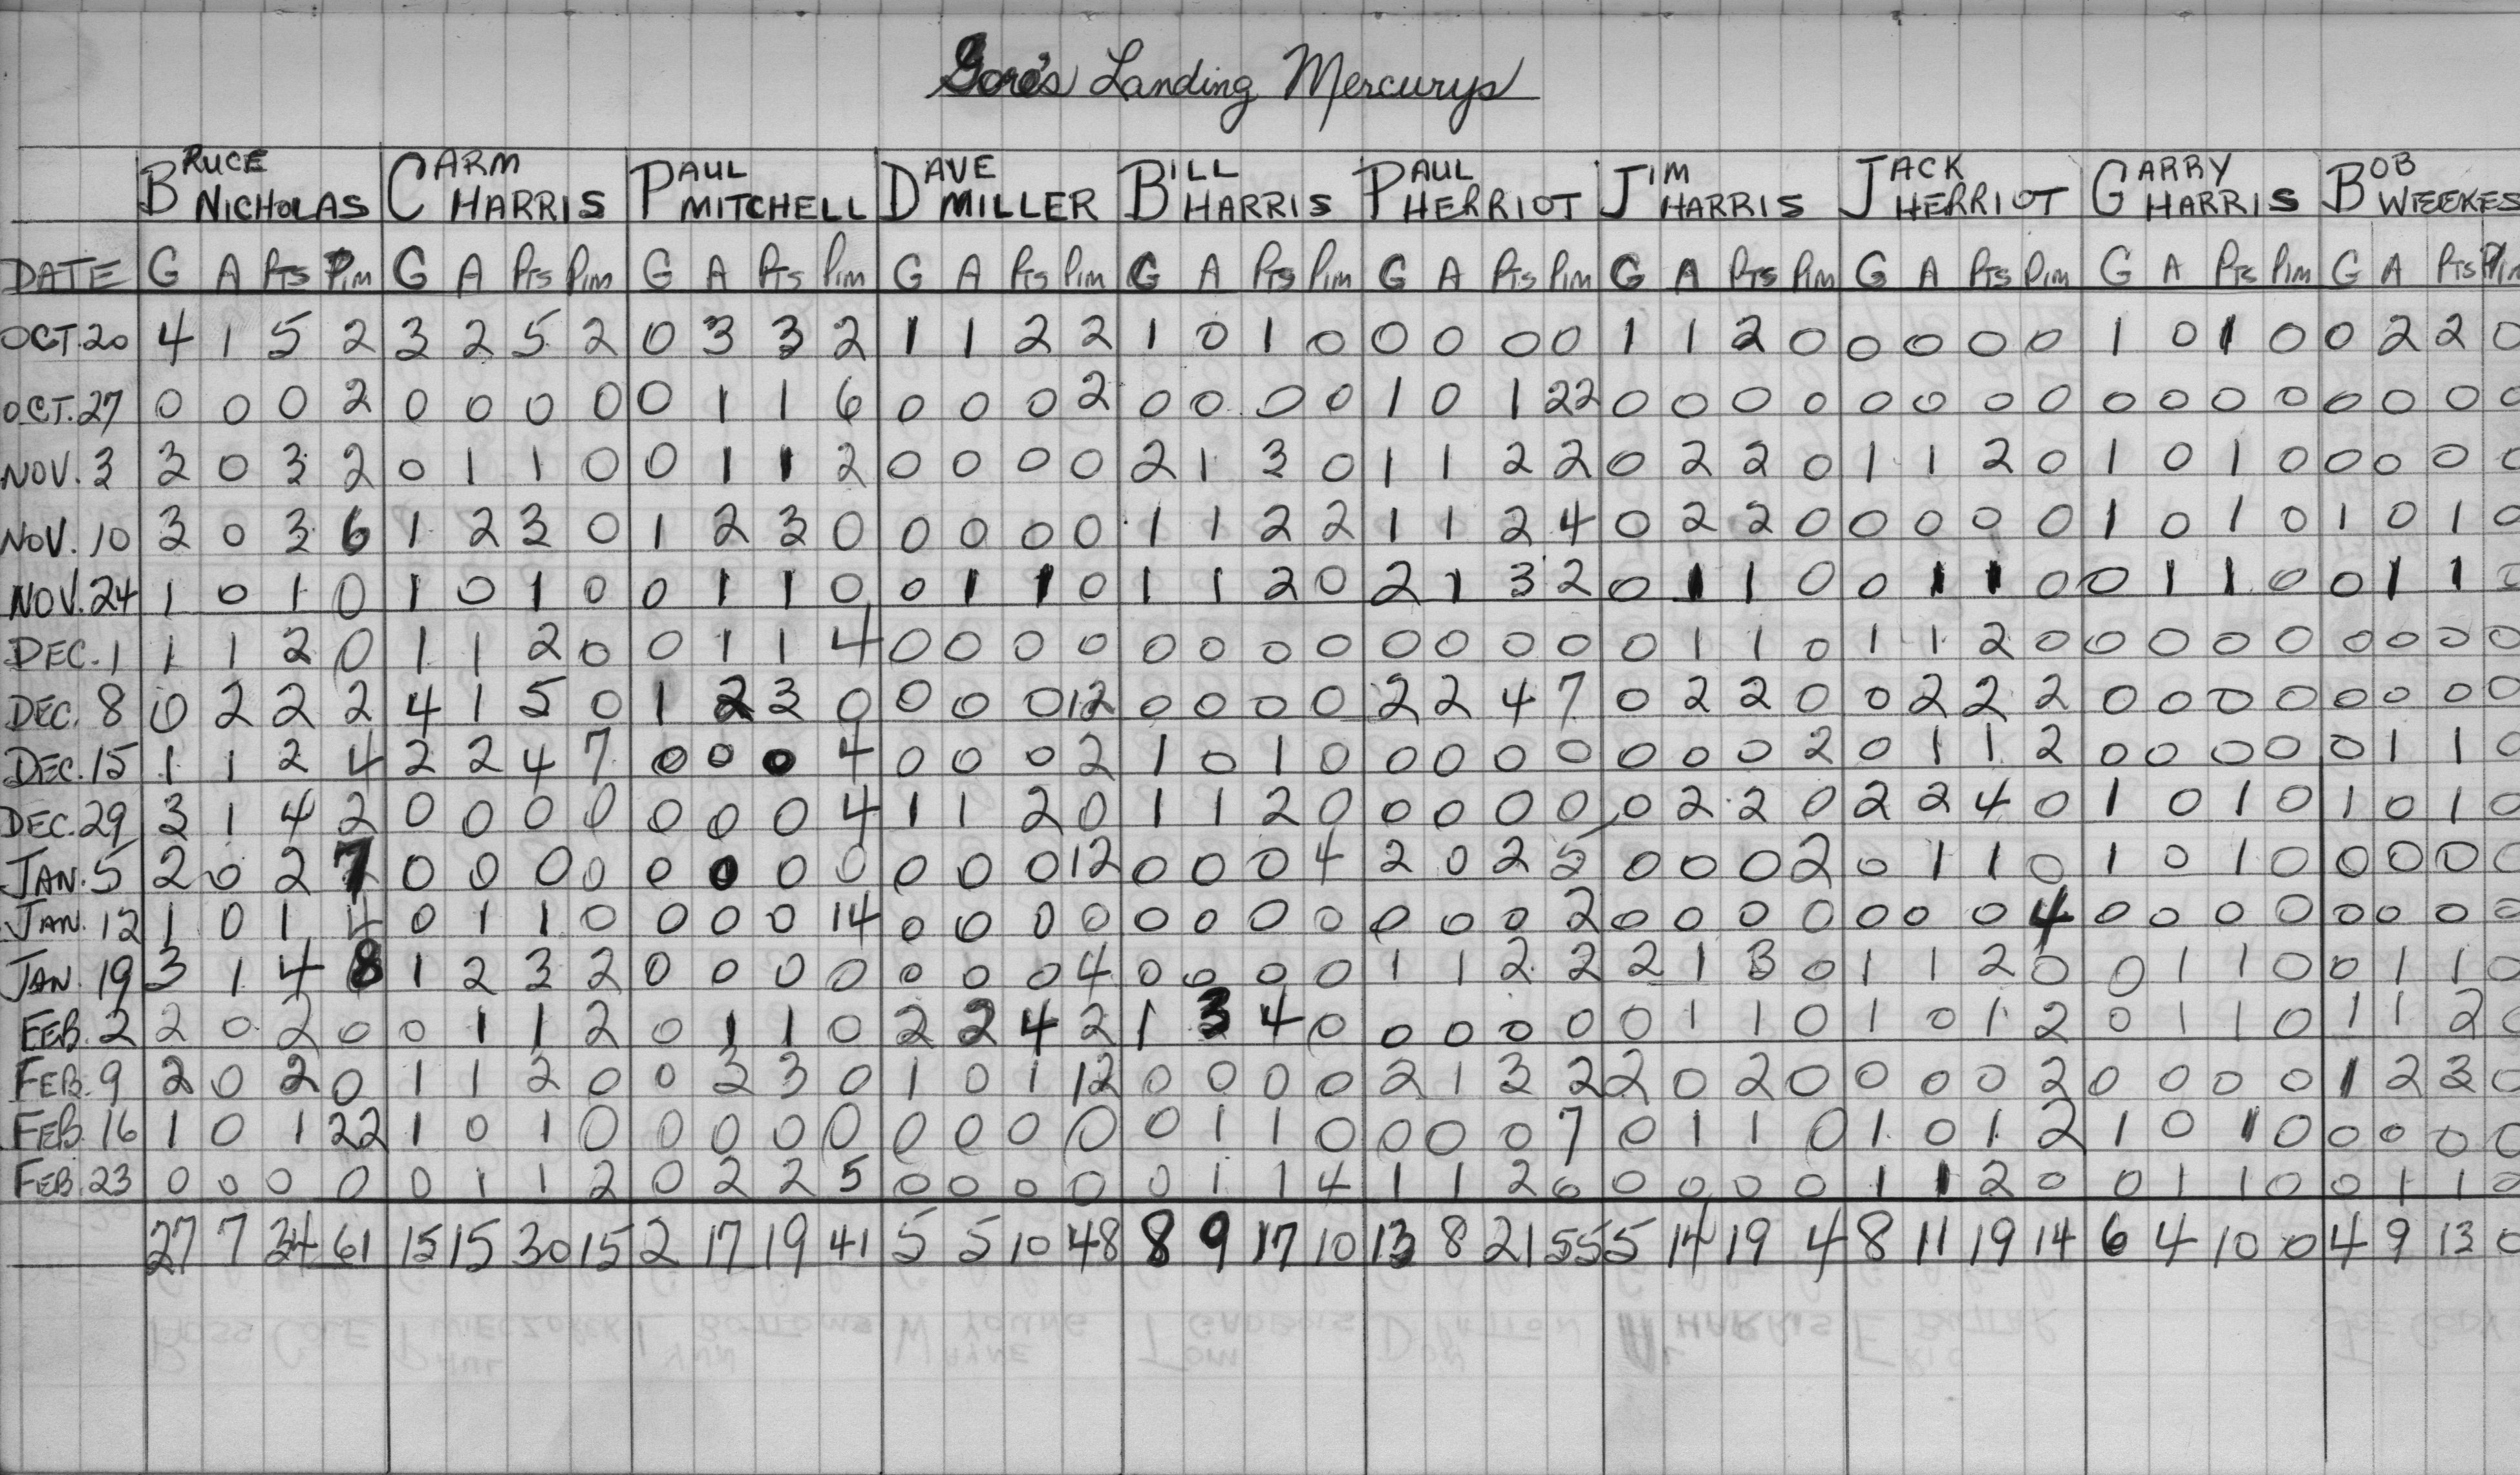 Gore's Landing Mercurys
BRUCE NICHOLAS CARM HARRIS PAUL MITCHELL DAVE MILLER BILL HARRIS PAUL HERRIOT JIM HARRIS JACK HERRIOT GARRY HARRIS BOB WEEKES
DATE G A Pts Pim G A Pts Pim G A Pts Pim G A Pts Pim G A Pts Pim G A Pts Pim G A Pts Pim G A Pts Pim G A Pts Pim G A Pts Pim
OCT. 20 4 1 5 2 3 2 5 2 0 3 3 2 1 1 2 2 1 0 1 0 0 0 0 0 1 1 2 0 0 0 0 0 1 0 1 0 0 2 2 0
OCT. 27 0 0 0 2 0 0 0 0 0 1 1 6 0 0 0 2 0 0 0 0 1 0 1 22 0 0 0 0 0 0 0 0 0 0 0 0 0 0 0 0
NOV. 3 3 0 3 2 0 1 1 0 0 1 1 2 0 0 0 0 2 1 3 0 1 1 2 2 0 2 2 0 1 1 2 0 1 0 1 0 0 0 0 0
NOV. 10 3 0 3 6 1 2 3 0 1 2 3 0 0 0 0 0 1 1 2 2 1 1 2 4 0 2 2 0 0 0 0 0 1 0 1 0 1 0 1 0
NOV. 24 1 0 1 0 1 0 1 0 0 1 1 0 0 1 1 0 1 1 2 0 2 1 3 2 0 1 1 0 0 1 1 0 0 1 1 0 0 1 1 0
DEC. 1 1 1 2 0 1 1 2 0 0 1 1 4 0 0 0 0 0 0 0 0 0 0 0 0 0 1 1 0 1 1 2 0 0 0 0 0 0 0 0 0
DEC. 8 0 2 2 2 4 1 5 0 1 2 3 0 0 0 0 12 0 0 0 0 2 2 4 7 0 2 2 0 0 2 2 2 0 0 0 0 0 0 0 0
DEC. 15 1 1 2 4 2 2 4 7 0 0 0 4 0 0 0 2 1 0 1 0 0 0 0 0 0 0 0 2 0 1 1 2 0 0 0 0 0 1 1 0
DEC. 29 3 1 4 2 0 0 0 0 0 0 0 4 1 1 2 0 1 1 2 0 0 0 0 0 0 2 2 0 2 2 4 0 1 0 1 0 1 0 1 0
JAN. 5 2 0 2 7 0 0 0 0 0 0 0 0 0 0 0 12 0 0 0 4 2 0 2 5 0 0 0 2 0 1 1 0 1 0 1 0 0 0 0 0
JAN. 12 1 0 1 4 0 1 1 0 0 0 0 14 0 0 0 0 0 0 0 0 0 0 0 2 0 0 0 0 0 0 0 4 0 0 0 0 0 0 0 0
JAN. 19 3 1 4 8 1 2 3 2 0 0 0 0 0 0 0 4 0 0 0 0 1 1 2 2 2 1 3 0 1 1 2 0 0 1 1 0 0 1 1 0
FEB. 2 2 0 2 0 0 1 1 2 0 1 1 0 2 2 4 2 1 3 4 0 0 0 0 0 0 1 1 0 1 0 1 2 0 1 1 0 1 1 2 0
FEB. 9 2 0 2 0 1 1 2 0 0 3 3 0 1 0 1 12 0 0 0 0 2 1 3 2 2 0 2 0 0 0 0 2 0 0 0 0 1 2 3 0
FEB. 16 1 0 1 22 1 0 1 0 0 0 0 0 0 0 0 0 0 1 1 0 0 0 0 7 0 1 1 0 1 0 1 2 1 0 1 0 0 0 0 0
FEB. 23 0 0 0 0 0 1 1 2 0 2 2 5 0 0 0 0 0 1 1 4 1 1 2 0 0 0 0 0 1 1 2 0 0 1 1 0 0 1 1 0
27 7 34 61 15 15 30 15 2 17 19 41 5 5 10 48 8 9 17 10 13 8 21 55 5 14 19 4 8 11 19 14 6 4 10 0 4 9 13 0